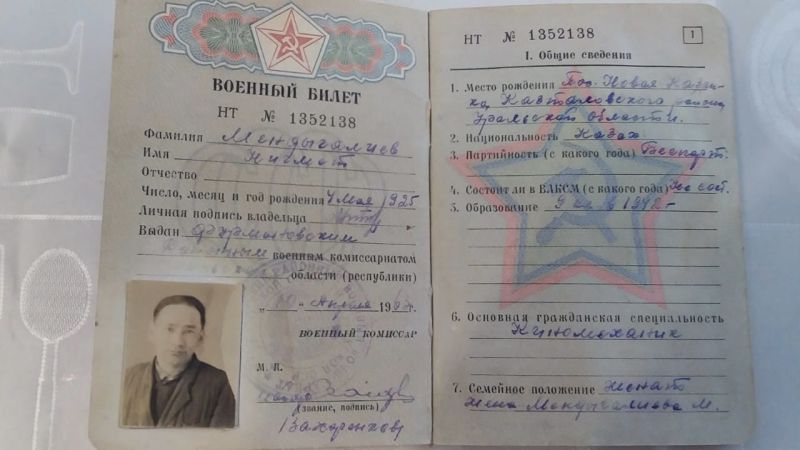 ВОЕННЫЙ БИЛЕТ
НТ № 1352138
Фамилия Мендыгалиев
Имя Нигмет
Отчество
Число, месяц и год рождения 4 мая 1925
Личная подпись владельца
Выдан Фурмановским
Районным военным комиссариатом
области (республики)
"10" апреля 19
ВОЕННЫЙ КОМИССАР
М. П.
(звание, подпись)
НТ № 1352138
1
I. Общие сведения
1. Место рождения Пос. Новая Казан-
ка, Казталовского района
Уральской области.
2. Национальность Казах
3. Партийность (с какого года) Беспарт.
4. Состоит ли в ВЛКСМ (с какого года) Не сост.
5. Образование 9 кл. в 1942
6. Основная гражданская специальность
Киномеханик
7. Семейное положение женат
жена Мендыгалиева М.